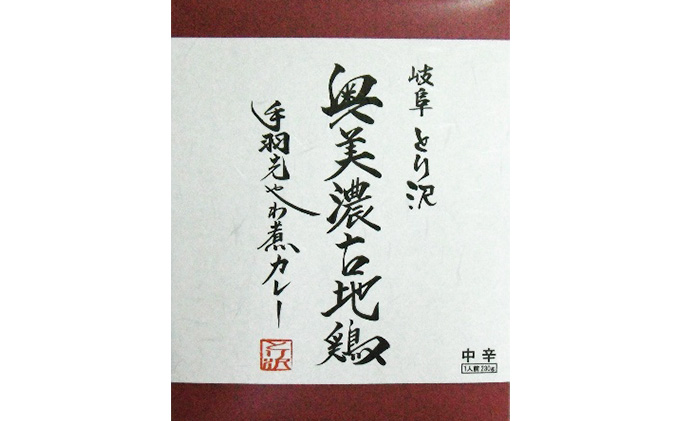 岐阜 とり沢
奥美濃古地鶏
手羽先やわ煮カレー
とり沢
中辛
1人前 230g